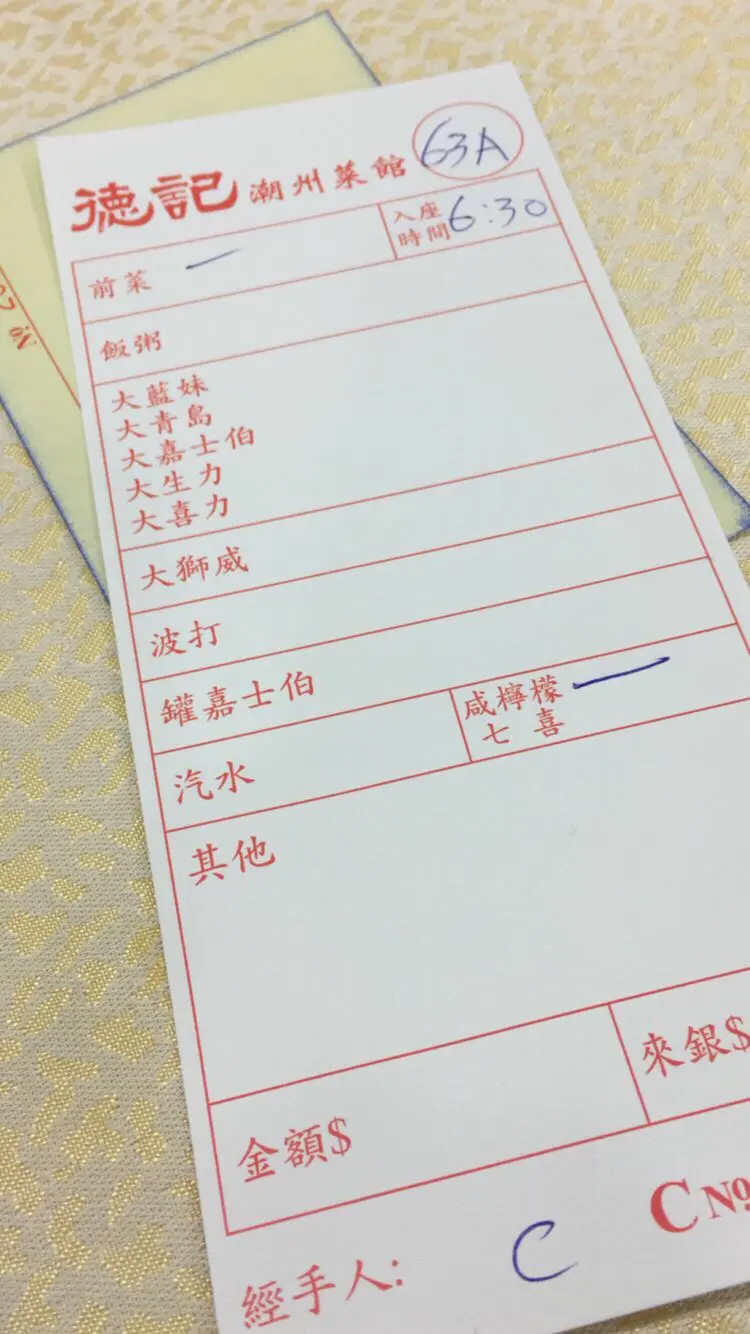 德記 潮州菜館 63A
前菜 一 入座時間 6:30
飯粥
大藍妹
大青島
大嘉士伯
大生力
大喜力
大獅威
波打
罐嘉士伯
汽水 咸檸檬七喜 一
其他
金額$ 來銀$
C №
經手人: C